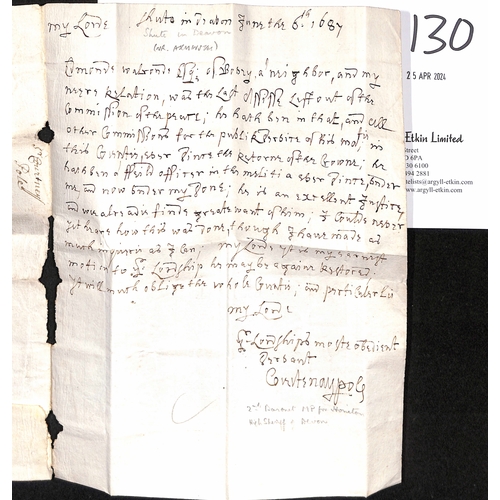 my Lorde Shute in Deavon June the 6th 1687
Shute in Devon
(nr. Axminster)
Edmonde walronde Esqr of Bovy, a neighbor, and my
neere Relation, was the Last Assisse Left out of the
Commission of the peace; he hath bin in that, and All
other Commissions for the publik Service of his maj. in
this Countie, ever since the restore of the Crowne; he
has bin a feild officer in the militia ever since, under
me, and now under my Sone; he is an excellent Justice
and wee alreadie finde greate want of him; I Coulde never
yet heare how this was Done, though I have made as
much inquirie as I Can. my Lorde it is my earnest
motion to yr Lordship he may be againe Restored:
it will much oblige the whole Countie; and perticulerlie
my Lorde
yr Lordships moste obedient
Servant
Courtenay pole
2nd Baronet MP for Honiton
High Sheriff of Devon
Sr Courtney
Pole
130
25 APR 2024
Etkin Limited
treet
D 6PA
30 6100
494 2881
telists@argyll-etkin.com
www.argyll-etkin.com